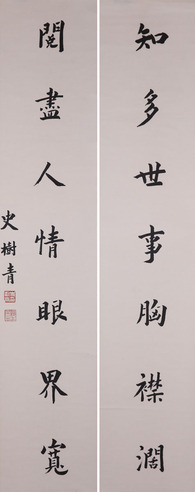 知多世事胸襟濶
閱盡人情眼界寬
史樹青